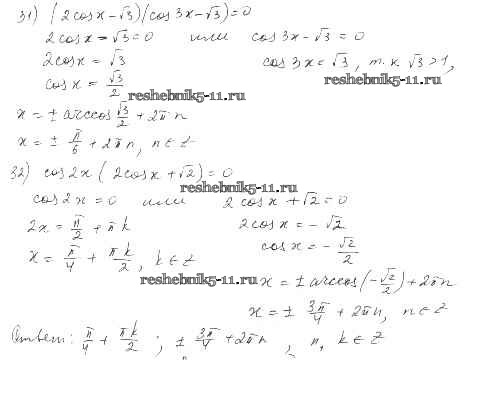 31) (2cosx - √3)(cos3x - √3) = 0
2cosx - √3 = 0 или cos3x - √3 = 0
2cosx = √3 cos3x = √3, т.к. √3 > 1,
cosx = √3/2 reshebnik5-11.ru
reshebnik5-11.ru
x = ± arccos √3/2 + 2πn
x = ± π/6 + 2πn, n ∈ Z
32) cos2x (2cosx + √2) = 0
reshebnik5-11.ru
cos2x = 0 или 2cosx + √2 = 0
2x = π/2 + πk 2cosx = -√2
x = π/4 + πk/2, k ∈ Z cosx = -√2/2
reshebnik5-11.ru x = ± arccos(-√2/2) + 2πn
x = ± 3π/4 + 2πn, n ∈ Z
Ответ: π/4 + πk/2 ; ± 3π/4 + 2πn, n, k ∈ Z